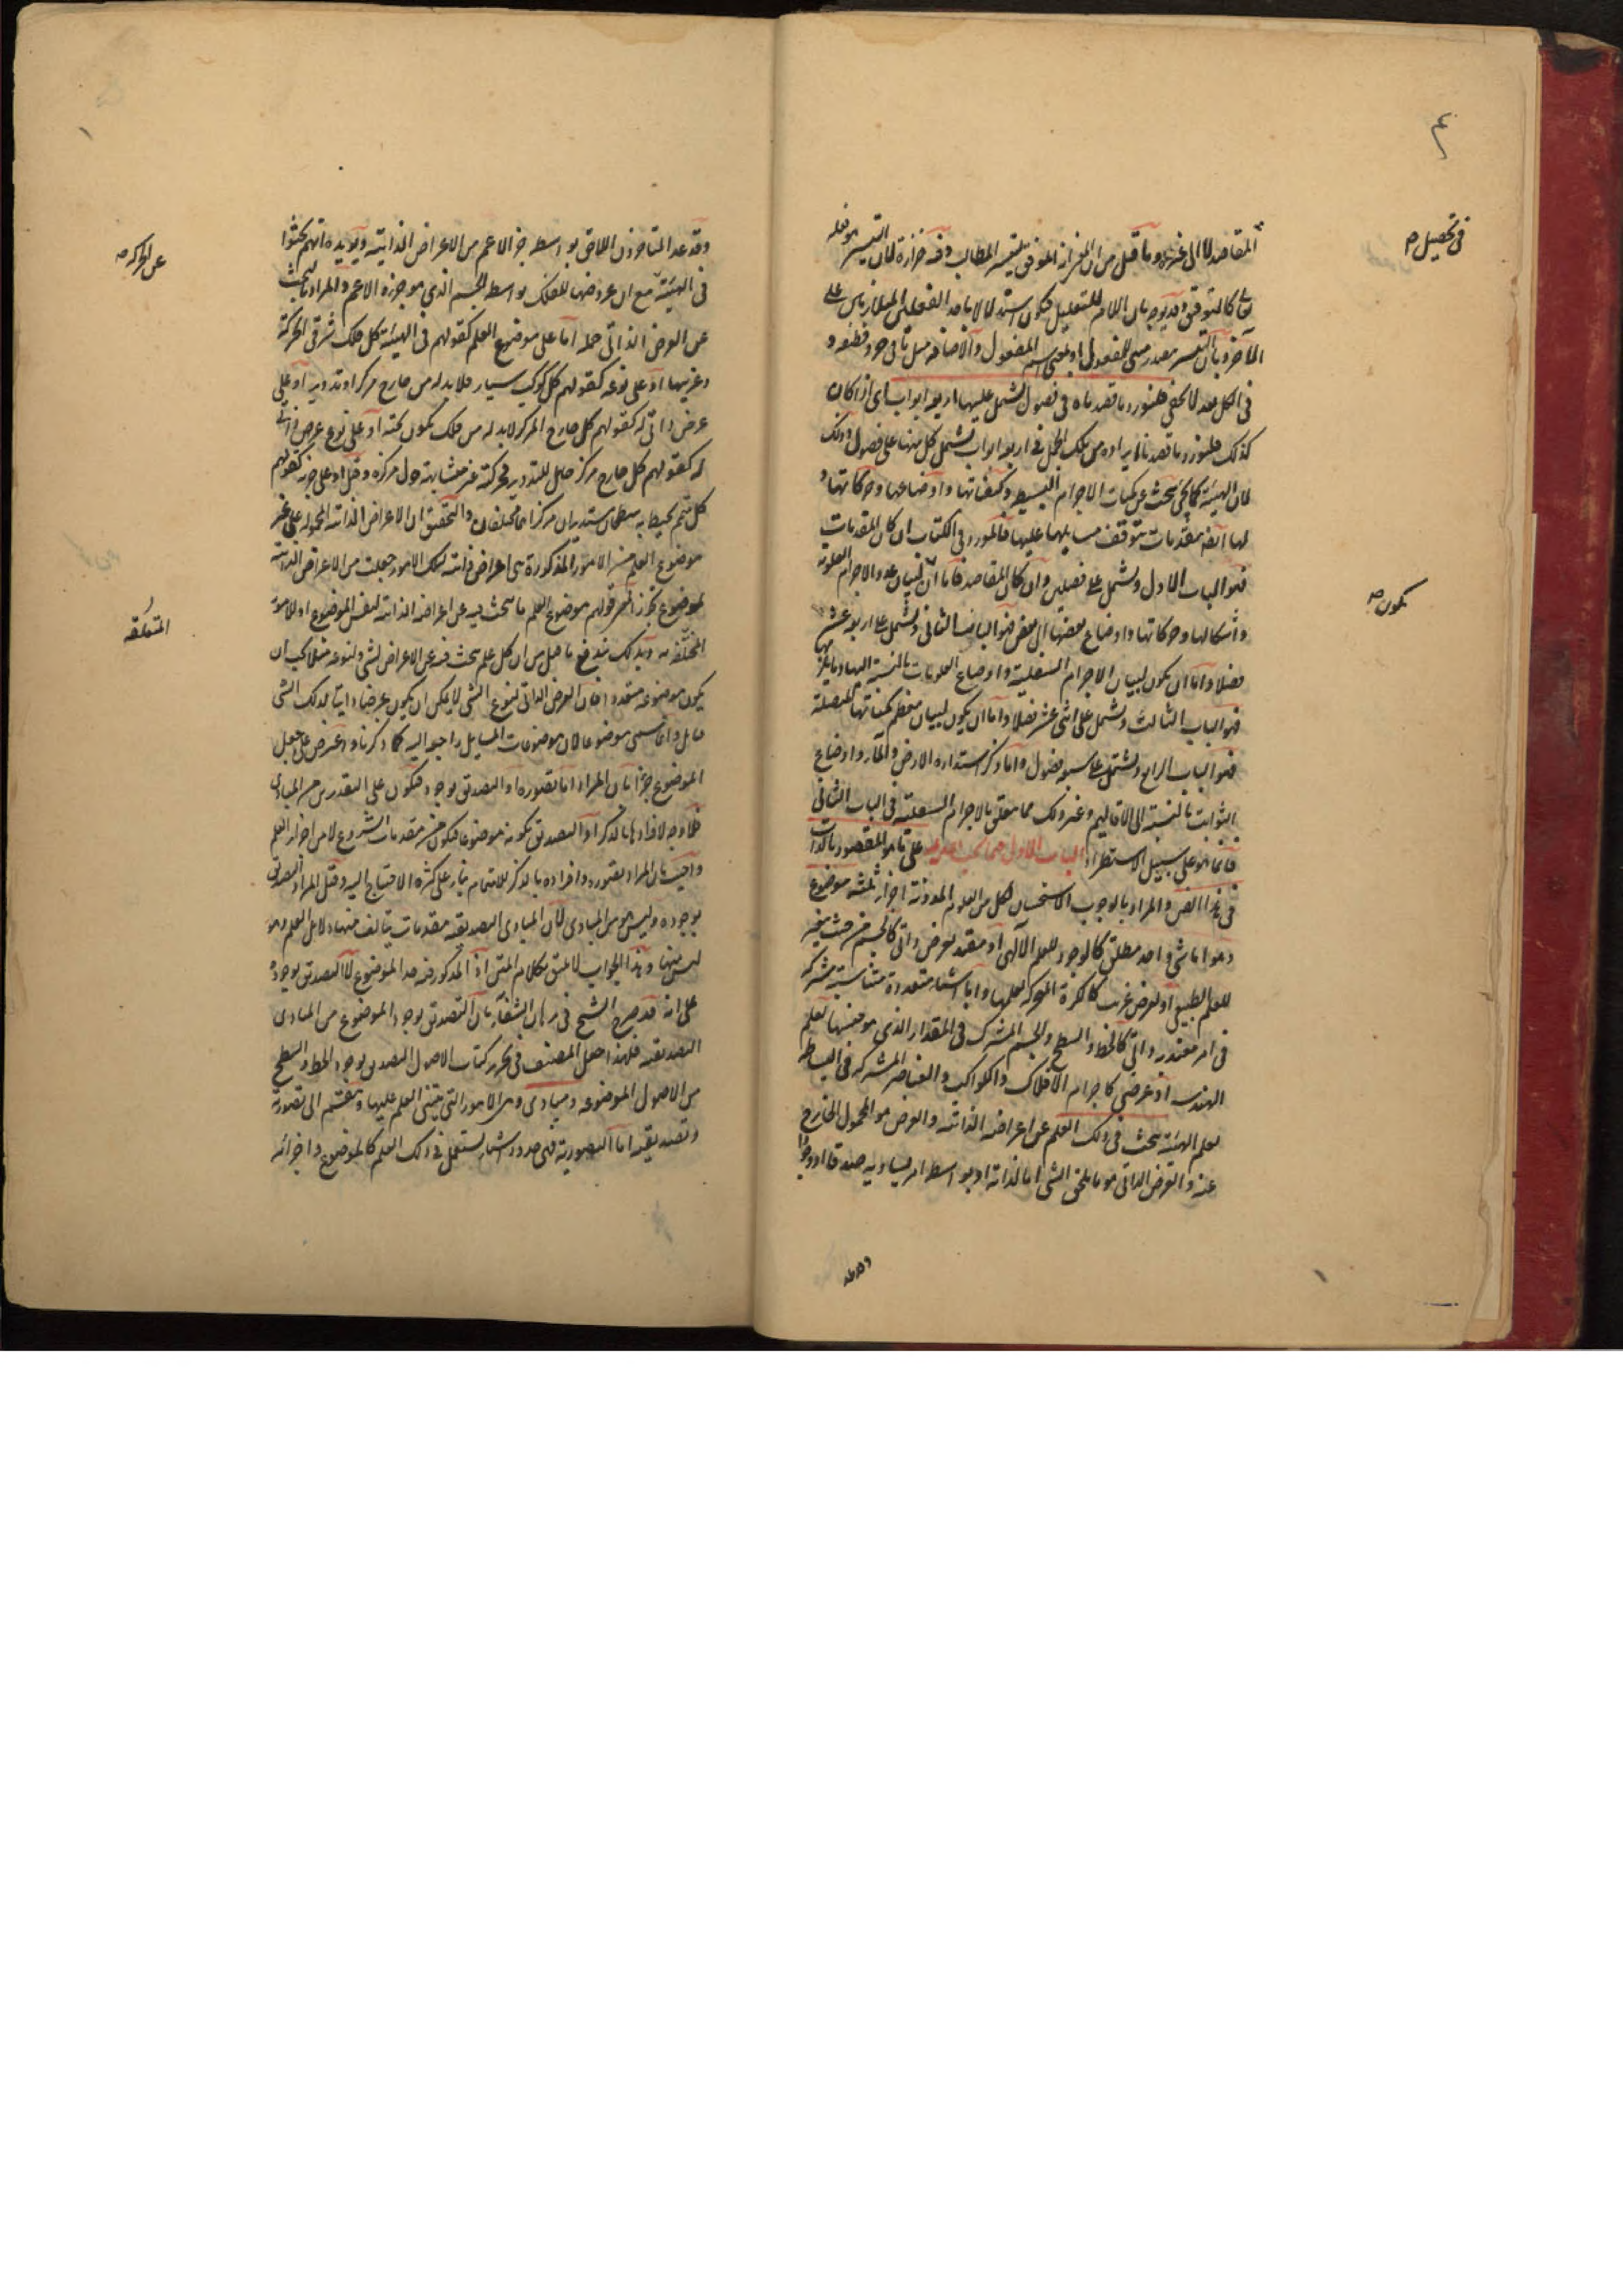 ٤
في تحصيل صح
المقاصد لا الى غيره وما قيل من ان المفهم انه الموفق لتيسير المطالب وفيه حزازة لان التيسير هو فعله
تعالى كالتوفيق وقد يوجه بان اللام للتعليل فيكون استدلالا باحد الفعلين المتلازمين على
الآخر وبان التيسير مصدر مبني للمفعول او بمعنى اسم المفعول والاضافة مثل ما في جرد قطيفة و
في الكل بعد لا يخفى فلنورد ما قصدناه في فصول يشتمل عليها اربعة ابواب اي اذا كان
كذلك فلنورد ما قصدنا ايراده من تلك الجمل في اربعة ابواب يشتمل كل منها على فصول وذلك
لان الهيئة كما يجيء يبحث عن كميات الاجرام البسيطة وكيفياتها واوضاعها وحركاتها و
لها ايضا مقدمات تتوقف مسايلها عليها فالمورد في الكتاب ان كان المقدمات
فهو الباب الاول ويشتمل على فصلين وان كان المقاصد فاما ان لبيان عدد الاجرام العلوية
يكون صح
واشكالها وحركاتها واوضاع بعضها الى بعض فهو الباب الثاني ويشتمل على اربعة عشر
فصلا واما ان يكون لبيان الاجرام السفلية واوضاع العلويات بالنسبة اليها وما يلزمها
فهو الباب الثالث ويشتمل على اثنى عشر فصلا واما ان يكون لبيان معظم كمياتها المتصلة
فهو الباب الرابع ويشتمل على سبعة فصول واما ذكر استدارة الارض والماء واوضاع
الثوابت بالنسبة الى الاقاليم وغير ذلك مما يتعلق بالاجرام السفلية في الباب الثاني
فانما هو على سبيل الاستطراد الباب الاول فيما يجب تقديمه على ما هو المقصود بالذات
في هذا الفن والمراد بالوجوب الاستحسان لكل من العلوم المدونة اجزاء ثلثة موضوع
وهو اما شيء واحد مطلق كالوجود للعلم الآلهي او مقيد بعرض ذاتي كالجسم من حيث يتغير
للعلم الطبيعي او بعرض غريب كالكرة المتحركة لعلمها واما اشياء متعددة متناسبة مشتركة
في امر معتد به ذاتي كالخط والسطح والجسم المشترك في المقدار الذي هو جنسها لعلم
الهندسة او عرضي كاجرام الافلاك والكواكب والعناصر المشتركة في البساطة
لعلم الهيئة يبحث في ذلك العلم عن اعراضه الذاتية والعرض هو المحمول الخارج
عنه والعرض الذاتي هو ما يلحق الشيء اما لذاته او بواسطة امر يساويه صدقا او وجودا
وقد عد
وقد عد المتاخرون اللاحق بواسطة جزء الاعم من الاعراض الذاتية ويؤيده انهم بحثوا
عن الحركة صح
في الهيئة مع ان عروضها للفلك بواسطة الجسم الذي هو جزؤه الاعم والمراد بالبحث
عن العرض الذاتي حمله اما على موضوع العلم كقولهم في الهيئة كل فلك شرقي الحركة
وغربيها او على نوعه كقولهم كل كوكب سيار فلا بد له من خارج مركز او تدوير او على
عرض ذاتي له كقولهم كل خارج المركز لا بد له من فلك يكون تحته او على نوع عرض ذاتي
له كقولهم كل خارج مركز حامل للتدوير فحركته غير متشابهة حول مركزه وقيل او على جزئه كقولهم
كل متمم يحيط به سطحان مستديران مركزاهما مختلفان والتحقيق ان الاعراض الذاتية المحمولة على غير
موضوع العلم من الامور المذكورة هي اعراض ذاتية لتلك الامور جعلت من الاعراض الذاتية
للموضوع تجوزا فمعنى قولهم موضوع العلم ما يبحث فيه عن اعراضه الذاتية لنفس الموضوع او للامور
المتعلقة
المختلفة به وبذلك يندفع ما قيل من ان كل علم يبحث فيه عن الاعراض لشيء ولنوعه مثلا يجب ان
يكون موضوعه متعددا فان العرض الذاتي لنوع الشيء لا يمكن ان يكون عرضا ذاتيا لذلك الشيء
فالموضوع انما سمي موضوعا لان موضوعات المسايل راجعة اليه كما ذكرنا واعترض على جعل
الموضوع جزءا بان المراد اما تصوره او التصديق بوجوده فيكون على التقديرين من المبادي
فلا وجه لافرادها بالذكر او التصديق بكونه موضوعا فيكون من مقدمات الشروع لا من اجزاء العلم
واجيب بان المراد تصوره وافراده بالذكر للاهتمام بناء على كثرة الاحتياج اليه وقيل المراد التصديق
بوجوده وليس هو من المبادي لان المبادي التصديقية مقدمات يتالف منها دلائل العلم وهو
ليس منها وهذا الجواب لا يمشي بكلام المتن اذ المذكور فيه حد الموضوع لا التصديق بوجوده
على انه قد صرح الشيخ في برهان الشفاء بان التصديق بوجود الموضوع من المبادي
التصديقية فلهذا جعل المصنف في تحرير كتاب الاصول التصديق بوجود الخط والسطح
من الاصول الموضوعة ومبادي وهي الامور التي يبتني العلم عليها وتنقسم الى تصورية
وتصديقية اما التصورية فهي حدود اشياء يستعمل في ذلك العلم كالموضوع واجزائه